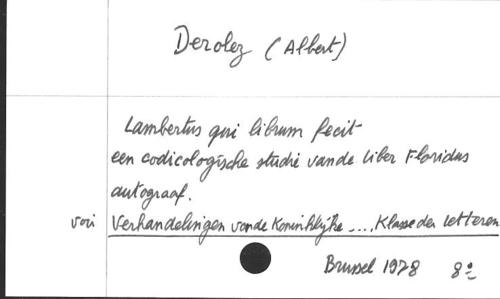 Derolez (Albert)
Lambertus qui librum fecit
een codicologische studie van de Liber Floridus
autograaf.
voir Verhandelingen van de Koninklijke .... Klasse der letteren
Brussel 1978 8º